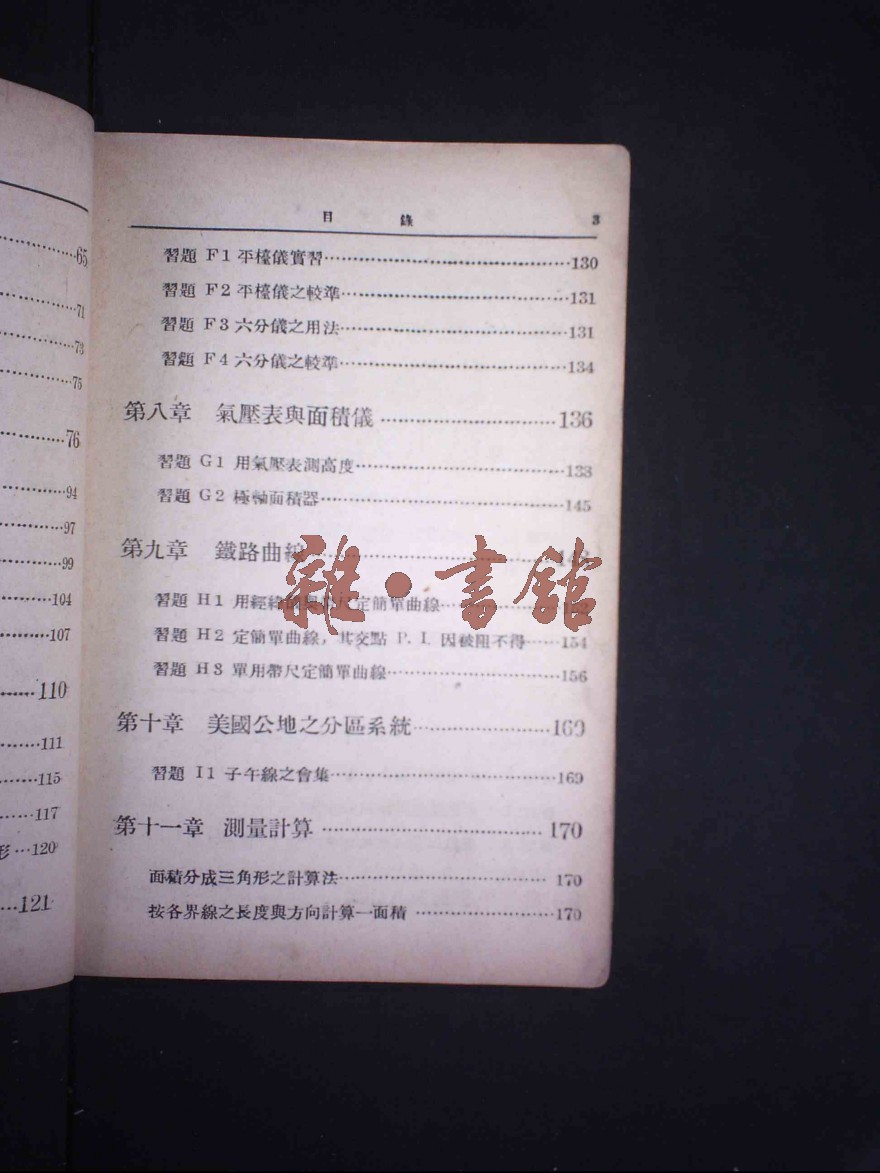 65
71
73
75
76
94
97
99
104
107
110
111
115
117
形…120
121
目 錄 3
習題 F1 平檯儀實習…130
習題 F2 平檯儀之較準…131
習題 F3 六分儀之用法…131
習題 F4 六分儀之較準…134
第八章 氣壓表與面積儀…136
習題 G1 用氣壓表測高度…133
習題 G2 極軸面積器…145
第九章 鐵路曲線
雜·書館
習題 H1 用經緯儀與帶尺定簡單曲線…
習題 H2 定簡單曲線，其交點 P. I. 因被阻不得…154
習題 H3 單用帶尺定簡單曲線…156
第十章 美國公地之分區系統…169
習題 I1 子午線之會集…169
第十一章 測量計算…170
面積分成三角形之計算法…170
按各界線之長度與方向計算一面積…170